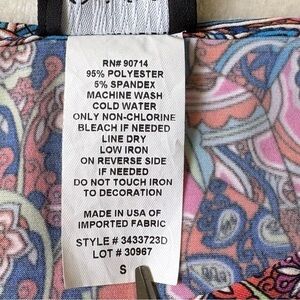 RN# 90714
95% POLYESTER
5% SPANDEX
MACHINE WASH
COLD WATER
ONLY NON-CHLORINE
BLEACH IF NEEDED
LINE DRY
LOW IRON
ON REVERSE SIDE
IF NEEDED
DO NOT TOUCH IRON
TO DECORATION
MADE IN USA OF
IMPORTED FABRIC
STYLE # 3433723D
LOT # 30967
S